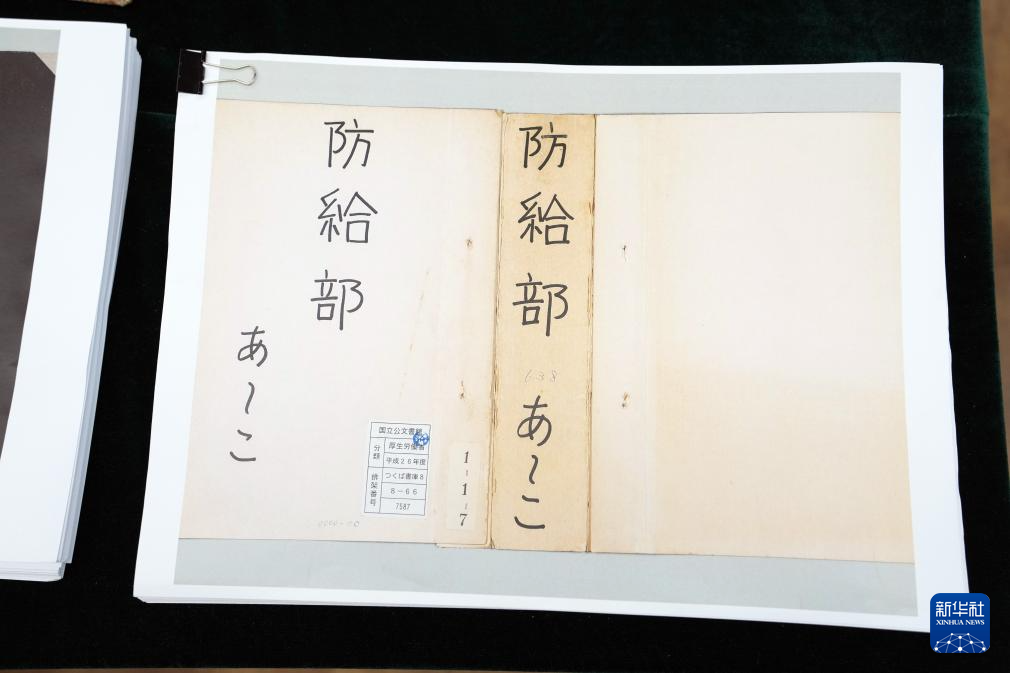 防給部
あ〜こ
国立公文書館
分類
厚生労働省
平成26年度
つくば書庫8
排架番号
8－66
7587
1-1-7
防給部
638
あ〜こ
新华社
XINHUA NEWS